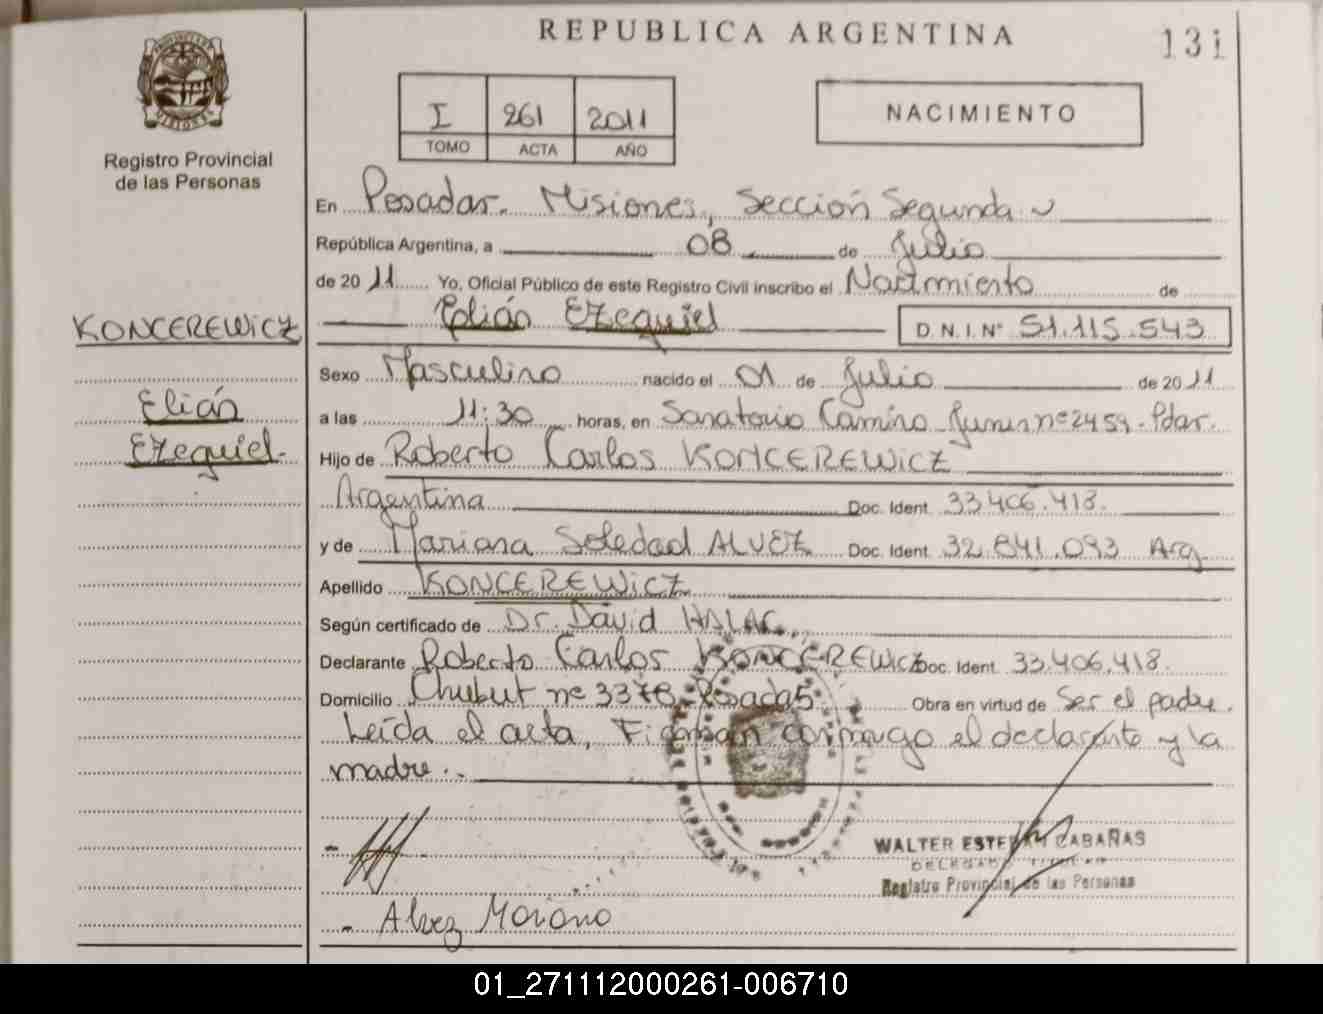 REPUBLICA ARGENTINA
131
PROVINCIA DE
MISIONES
Registro Provincial
de las Personas
I 261 2011
TOMO ACTA AÑO
NACIMIENTO
En Posadas. Misiones, Sección Segunda
República Argentina, a 08 de Julio
de 2011 Yo, Oficial Público de este Registro Civil inscribo el Nacimiento de
Elián Ezequiel D. N. I. N° 51.115.543
KONCEREWICZ
Elián
Ezequiel.
Sexo Masculino nacido el 01 de Julio de 2011
a las 11:30 horas, en Sanatorio Camino Junin nº 2459 - Pdas.
Hijo de Roberto Carlos KONCEREWICZ
Argentina Doc. Ident. 33.406.418.
y de Mariana Soledad ALVEZ Doc. Ident. 32.841.093 Arg.
Apellido KONCEREWICZ
Según certificado de Dr. David HALAC
Declarante Roberto Carlos KONCEREWICZ Doc. Ident. 33.406.418.
Domicilio Chubut nº 3378 - Posadas Obra en virtud de Ser el padre.
Leída el acta, Firman conmigo el declarante y la
madre.-
WALTER ESTEBAN CABAÑAS
DELEGADO TITULAR
Registro Provincial de las Personas
- Alvez Mariana
01_271112000261-006710